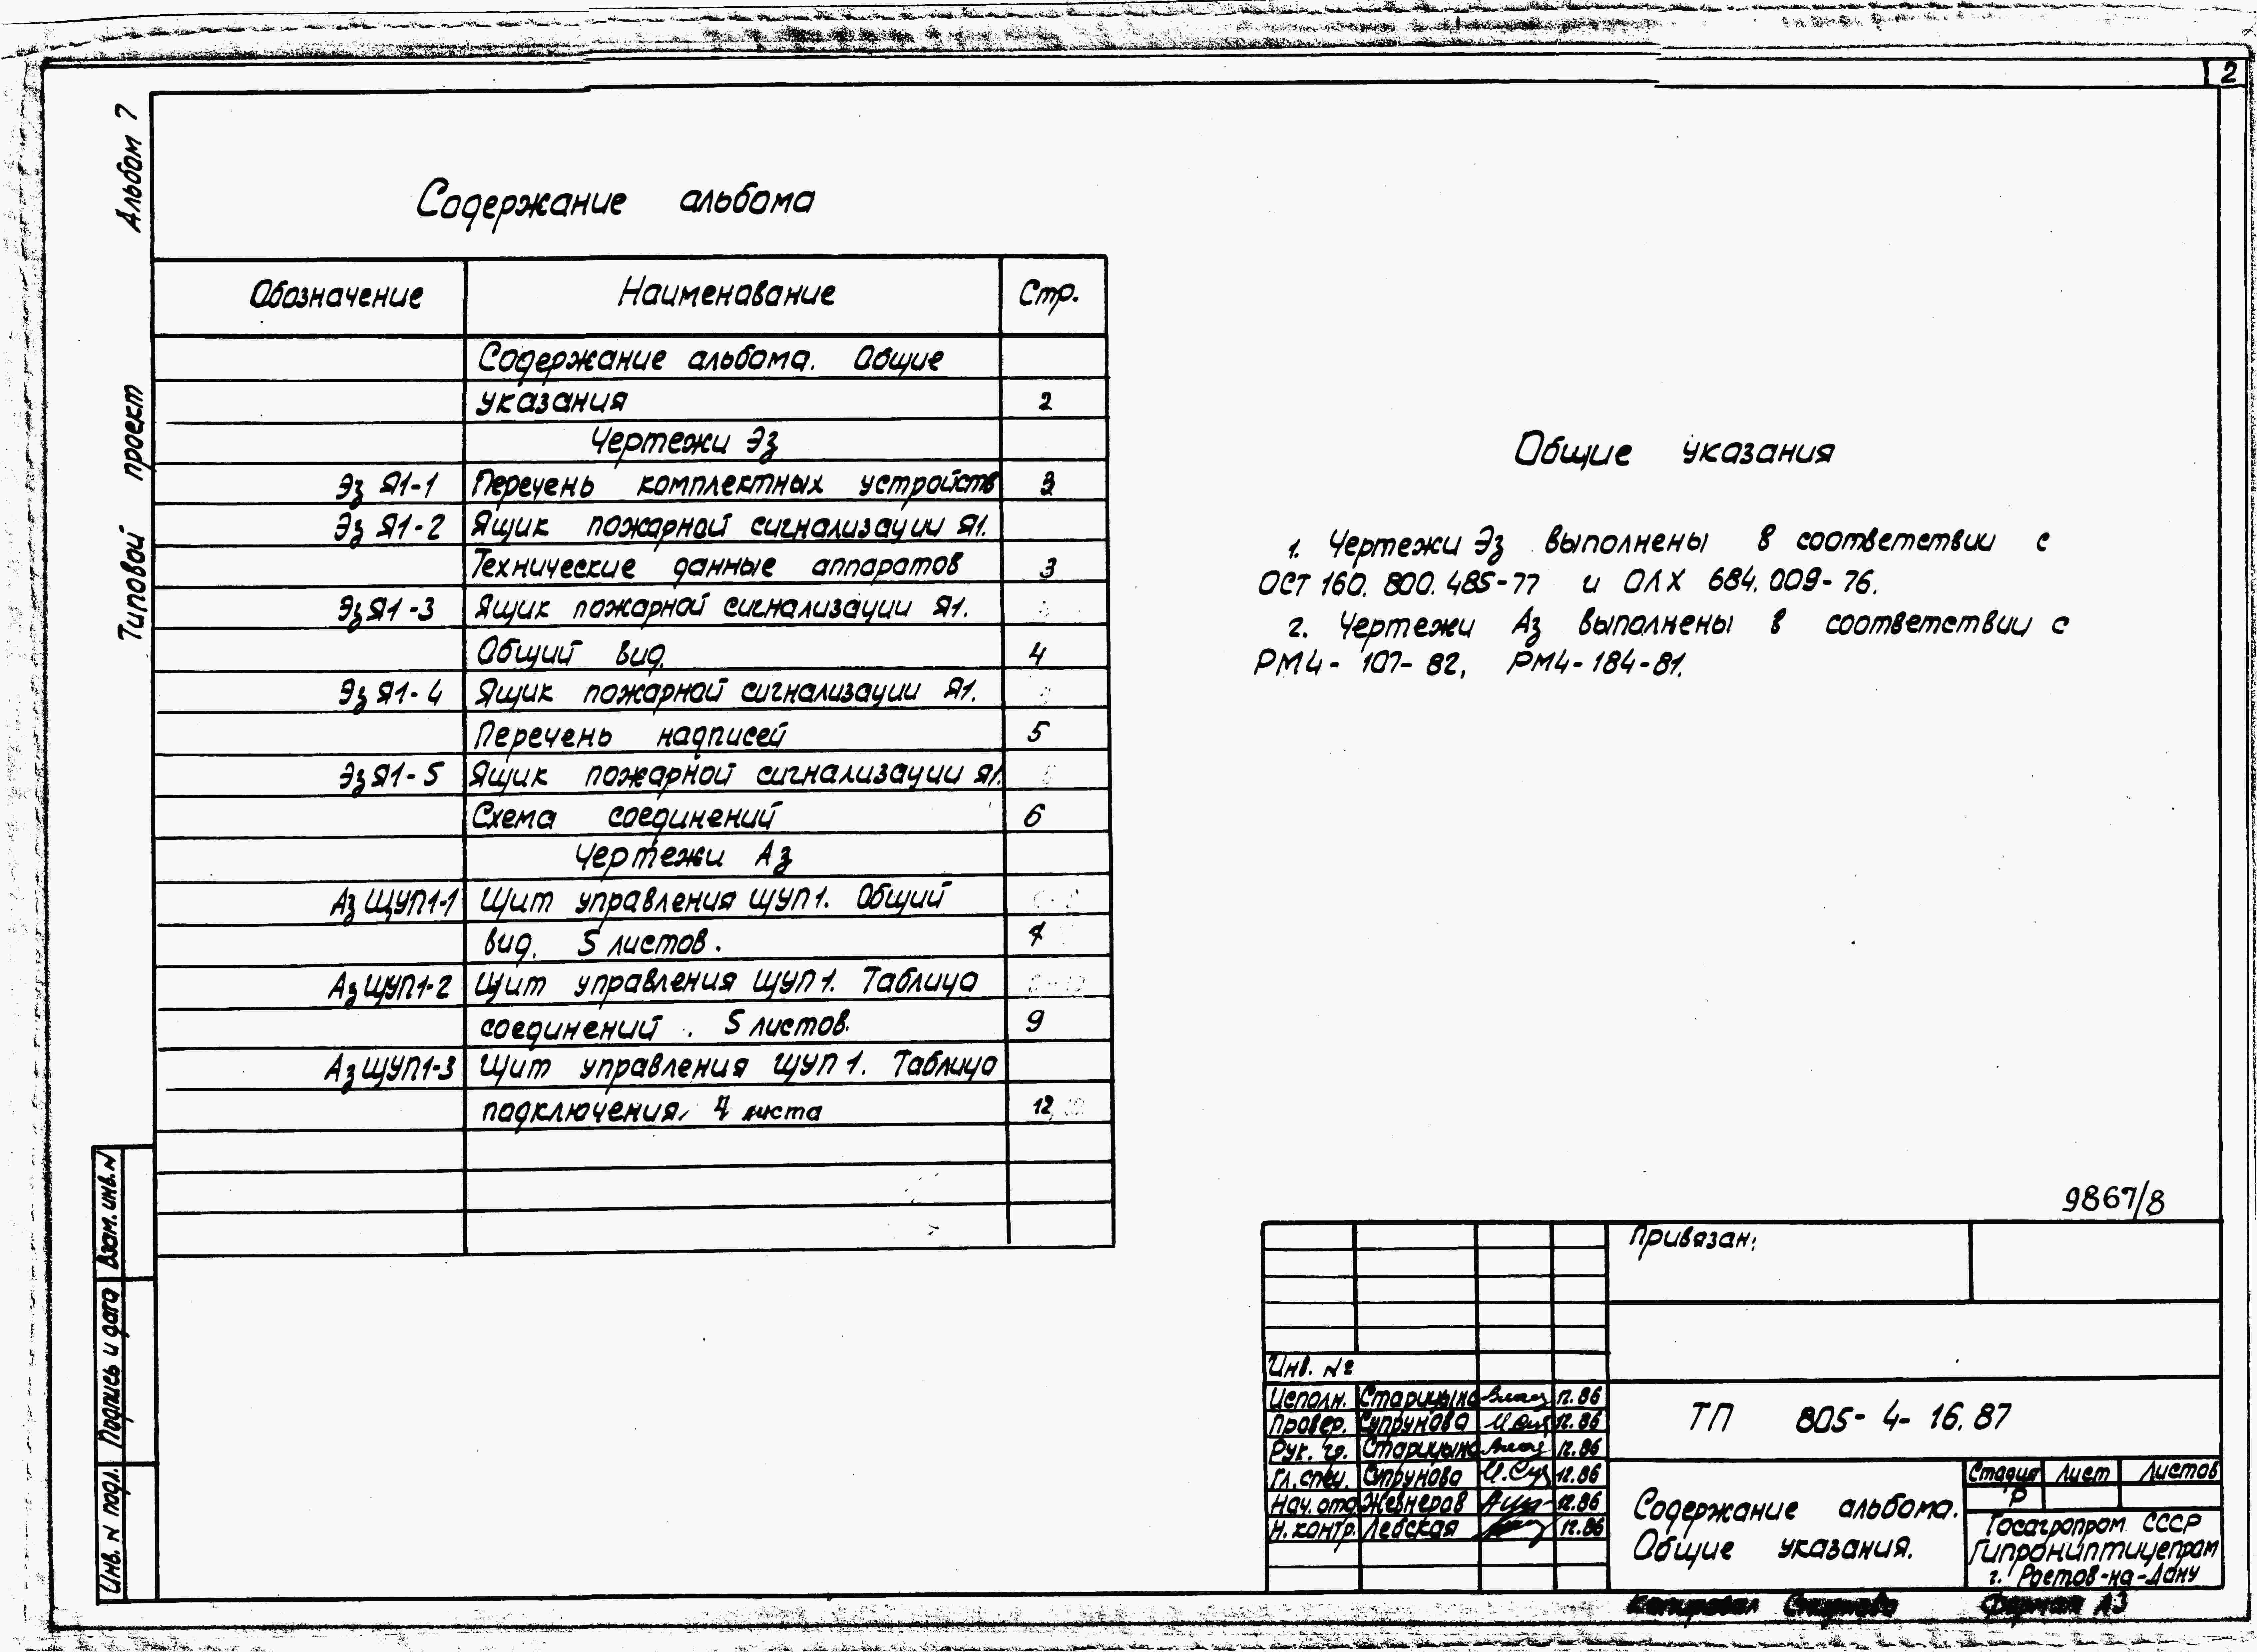 2
Альбом 7
Типовой проект
Содержание альбома
Обозначение Наименование Стр.
Содержание альбома. Общие
указания 2
Чертежи Эз
Эз Я1-1 Перечень комплектных устройств 3
Эз Я1-2 Ящик пожарной сигнализации Я1.
Технические данные аппаратов 3
Эз Я1-3 Ящик пожарной сигнализации Я1.
Общий вид. 4
Эз Я1-4 Ящик пожарной сигнализации Я1.
Перечень надписей 5
Эз Я1-5 Ящик пожарной сигнализации Я1.
Схема соединений 6
Чертежи Аз
Аз ЩУП1-1 Щит управления ЩУП1. Общий
вид. 5 листов. 7
Аз ЩУП1-2 Щит управления ЩУП1. Таблица
соединений. 5 листов. 9
Аз ЩУП1-3 Щит управления ЩУП1. Таблица
подключения. 4 листа 12
Общие указания
1. Чертежи Эз выполнены в соответствии с
ОСТ 160.800.485-77 и ОЛХ 684.009-76.
2. Чертежи Аз выполнены в соответствии с
РМ4-107-82, РМ4-184-81.
9867/8
Привязан:
Инв. №
Исполн. Старицына 12.86
Провер. Супрунова 12.86
Рук. гр. Старицына 12.86
Гл. спец. Супрунова 12.86
Нач. отд. Жевнеров 12.86
Н. контр. Левская 12.86
ТП 805-4-16.87
Содержание альбома.
Общие указания.
Стадия Лист Листов
Р
Госагропром СССР
Гипрониптицепром
г. Ростов-на-Дону
Копировал
Формат А3
Взам. инв. №
Подпись и дата
Инв. № подл.